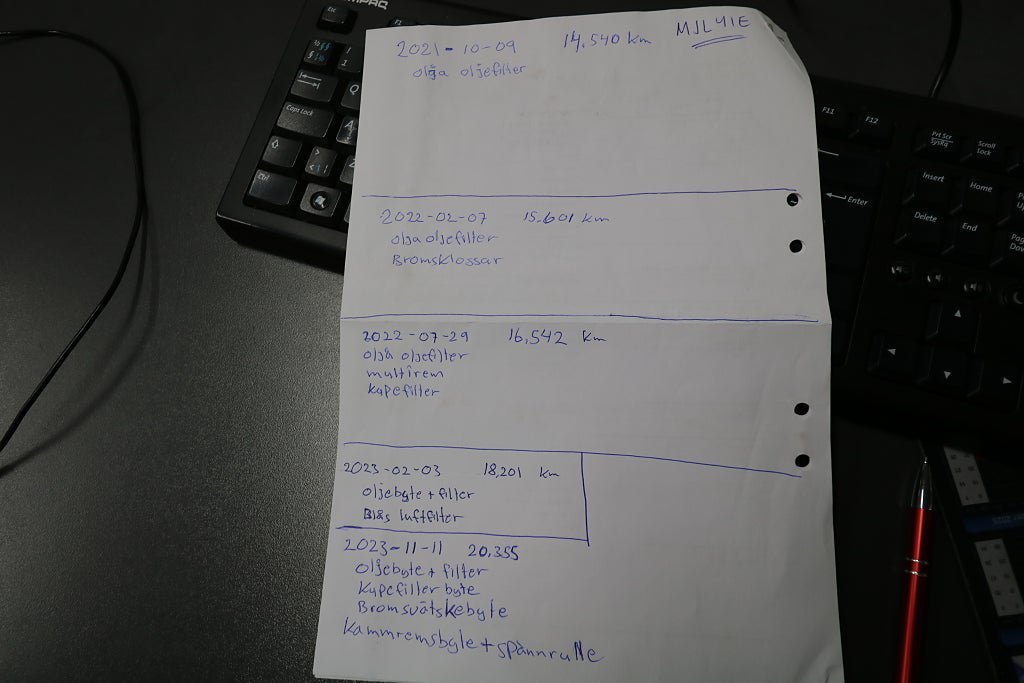 COMPAQ
Esc
F1
Q
Caps Lock
A
Z
Ctrl
F11
F12
Prt Scr
SysRq
Scroll
Lock
Insert
Home
Enter
Delete
End
2021-10-09 14,540 km MJL41E
olja oljefilter
2022-02-07 15,601 km
olja oljefilter
Bromsklossar
2022-07-29 16,542 km
olja oljefilter
multirem
Kupefilter
2023-02-03 18,201 km
oljebyte + filter
Blås luftfilter
2023-11-11 20,355
oljebyte + filter
Kupefilter byte
Bromsvätskebyte
Kammremsbyte + spännrulle